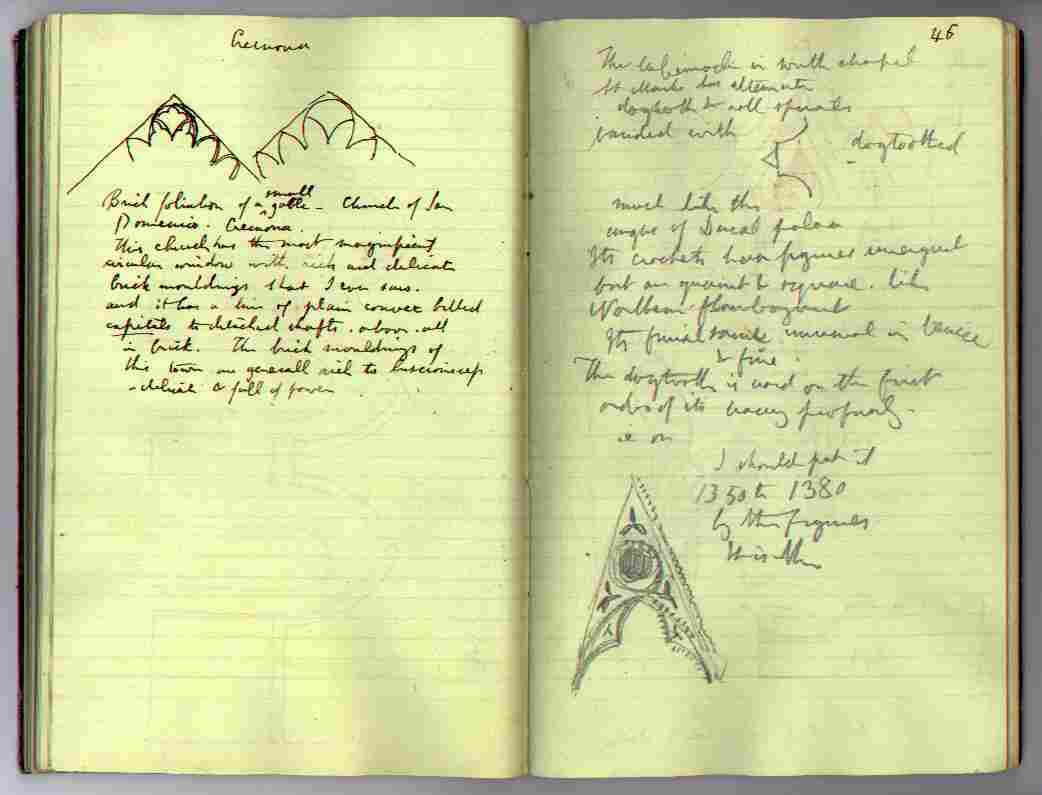 Cremona
Brick foliation of a small gable - Church of San
Domenico. Cremona.
This church has the most magnificent
circular window with rich and delicate
brick mouldings that I ever saw.
and it has a line of plain convex belled
capitals to detached shafts. above. all
in brick. The brick mouldings of
this town are generall rich to lusciousness
delicate & full of power
46
The in south chapel
St Marks has alternate
dogtooth & roll spirals
banded with
dogtoothed
much like the
angle of Ducal palace
Its crockets have figures
but are quaint & square. like
Northern flamboyant
Its finial unusual in Venice
& fine.
The dogtooth is used on the first
order of its tracery
ie on
I should put it
1350 to 1380
by the figures